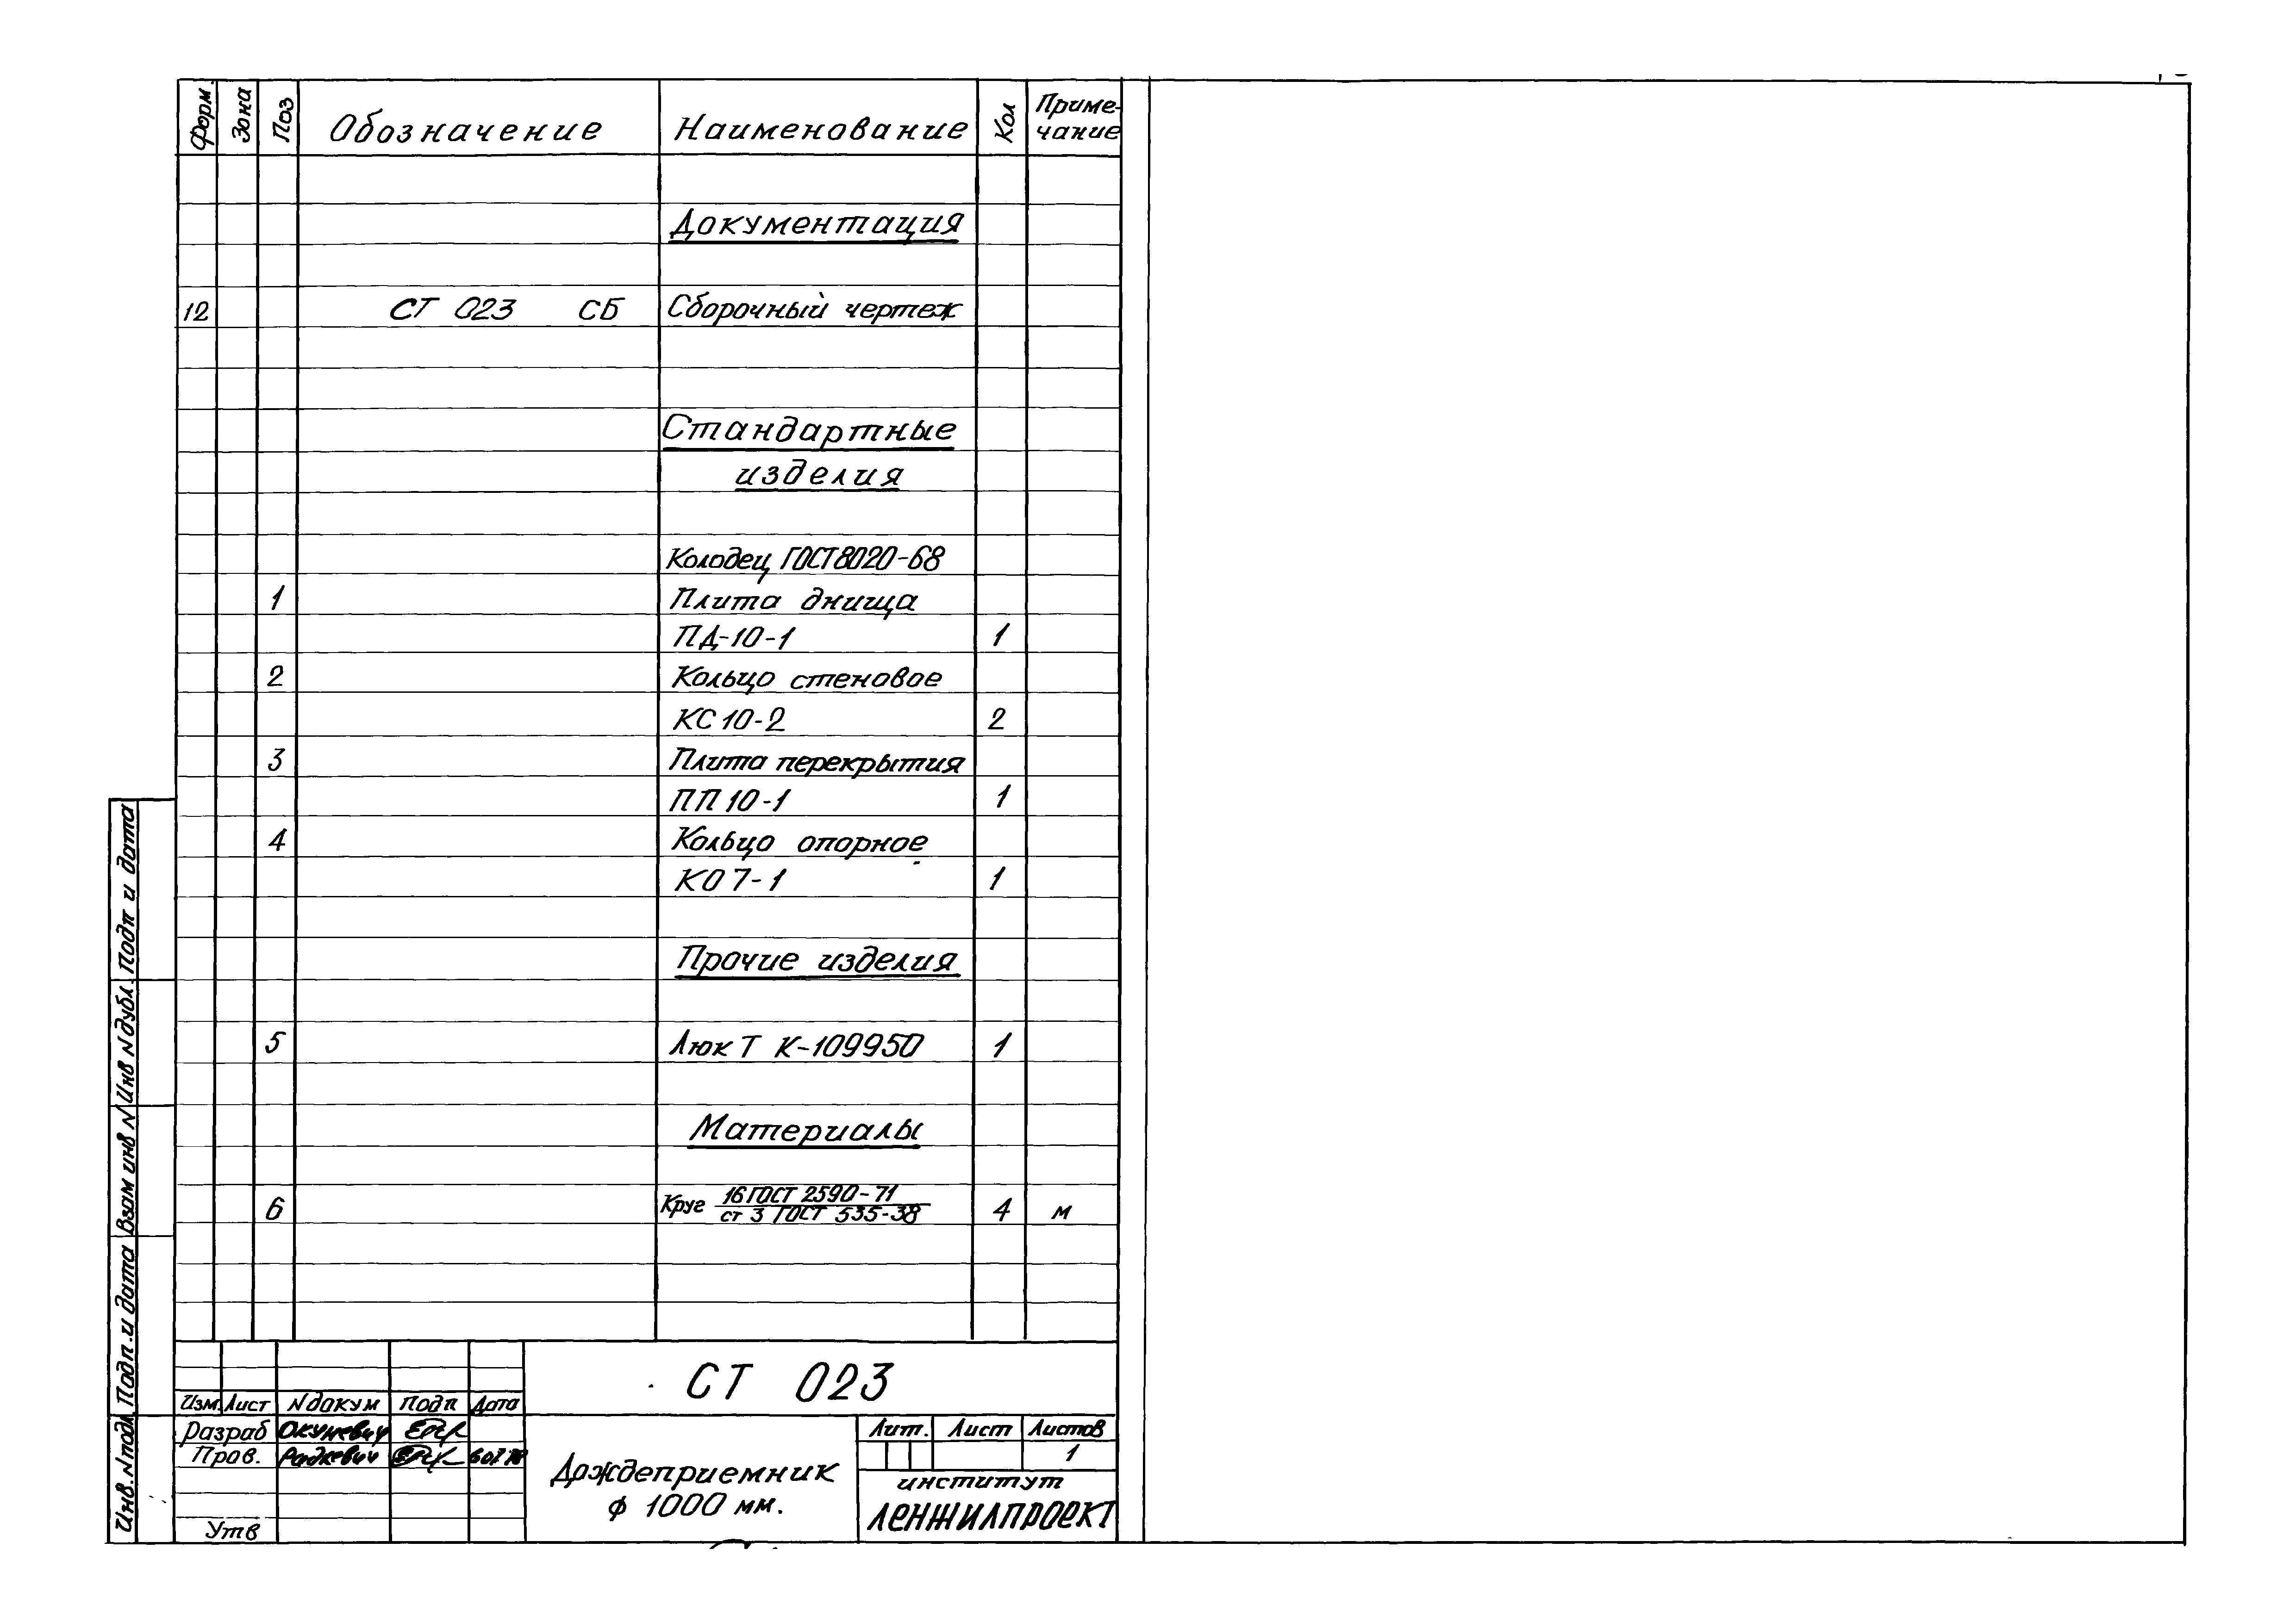 Форм. Зона Поз Обозначение Наименование Кол Приме-
чание
Документация
12 СТ 023 СБ Сборочный чертеж
Стандартные
изделия
Колодец ГОСТ 8020-68
1 Плита днища
ПД-10-1 1
2 Кольцо стеновое
КС 10-2 2
3 Плита перекрытия
ПП 10-1 1
4 Кольцо опорное
КО 7-1 1
Прочие изделия
5 Люк Т К-109950 1
Материалы
6 Круг 16 ГОСТ 2590-71 4 м
ст 3 ГОСТ 535-38
Инв. N подл. Подп. и дата Взам инв N Инв N дубл. Подп и дата
СТ 023
Изм. Лист N докум Подп Дата
Разраб Окуневич
Пров. Радкевич
Утв
Дождеприемник
ф 1000 мм.
Лит. Лист Листов
1
институт
ЛЕНЖИЛПРОЕКТ